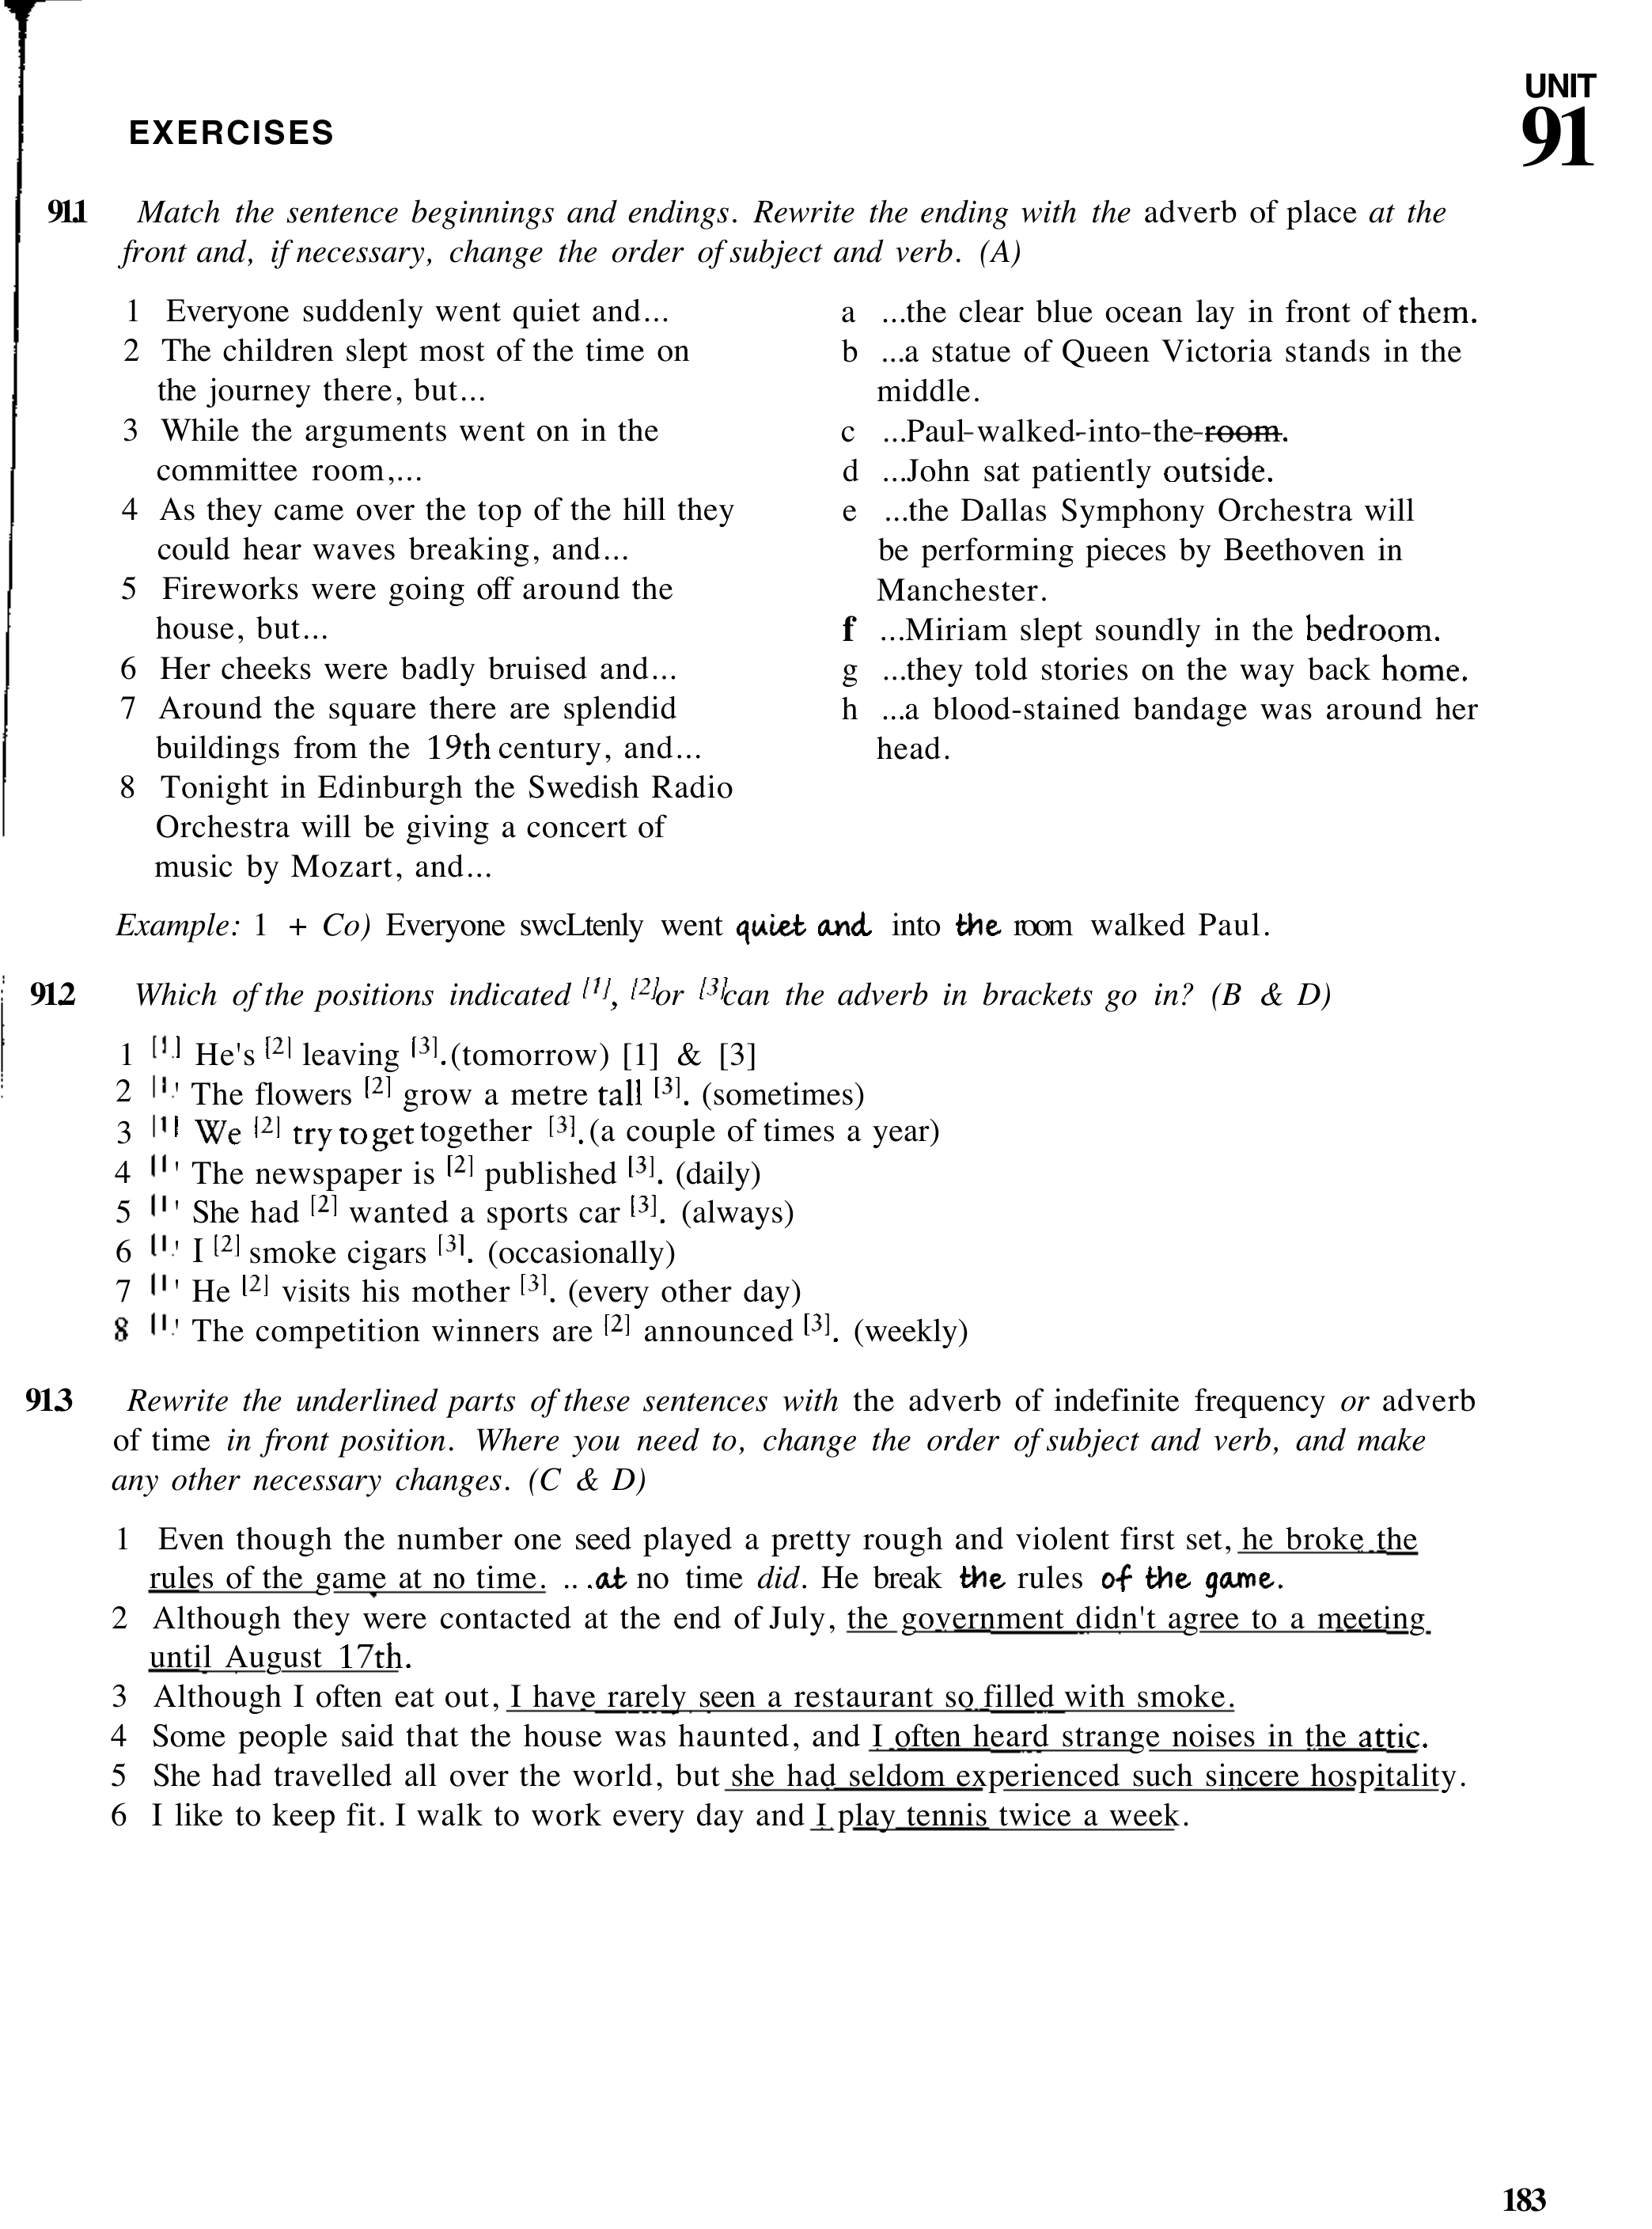 UNIT
91
EXERCISES
91.1 Match the sentence beginnings and endings. Rewrite the ending with the adverb of place at the
front and, if necessary, change the order of subject and verb. (A)
1 Everyone suddenly went quiet and...
2 The children slept most of the time on
the journey there, but...
3 While the arguments went on in the
committee room,...
4 As they came over the top of the hill they
could hear waves breaking, and...
5 Fireworks were going off around the
house, but...
6 Her cheeks were badly bruised and...
7 Around the square there are splendid
buildings from the 19th century, and...
8 Tonight in Edinburgh the Swedish Radio
Orchestra will be giving a concert of
music by Mozart, and...
a ...the clear blue ocean lay in front of them.
b ...a statue of Queen Victoria stands in the
middle.
c ...Paul-walked-into-the-room.
d ...John sat patiently outside.
e ...the Dallas Symphony Orchestra will
be performing pieces by Beethoven in
Manchester.
f ...Miriam slept soundly in the bedroom.
g ...they told stories on the way back home.
h ...a blood-stained bandage was around her
head.
Example: 1 + Co) Everyone swcLtenly went quiet and into the room walked Paul.
91.2 Which of the positions indicated [1], [2] or [3] can the adverb in brackets go in? (B & D)
1 [1] He's [2] leaving [3]. (tomorrow) [1] & [3]
2 [1] The flowers [2] grow a metre tall [3]. (sometimes)
3 [1] We [2] try to get together [3]. (a couple of times a year)
4 [1] The newspaper is [2] published [3]. (daily)
5 [1] She had [2] wanted a sports car [3]. (always)
6 [1] I [2] smoke cigars [3]. (occasionally)
7 [1] He [2] visits his mother [3]. (every other day)
8 [1] The competition winners are [2] announced [3]. (weekly)
91.3 Rewrite the underlined parts of these sentences with the adverb of indefinite frequency or adverb
of time in front position. Where you need to, change the order of subject and verb, and make
any other necessary changes. (C & D)
1 Even though the number one seed played a pretty rough and violent first set, he broke the
rules of the game at no time. ...at no time did. He break the rules of the game.
2 Although they were contacted at the end of July, the government didn't agree to a meeting
until August 17th.
3 Although I often eat out, I have rarely seen a restaurant so filled with smoke.
4 Some people said that the house was haunted, and I often heard strange noises in the attic.
5 She had travelled all over the world, but she had seldom experienced such sincere hospitality.
6 I like to keep fit. I walk to work every day and I play tennis twice a week.
183